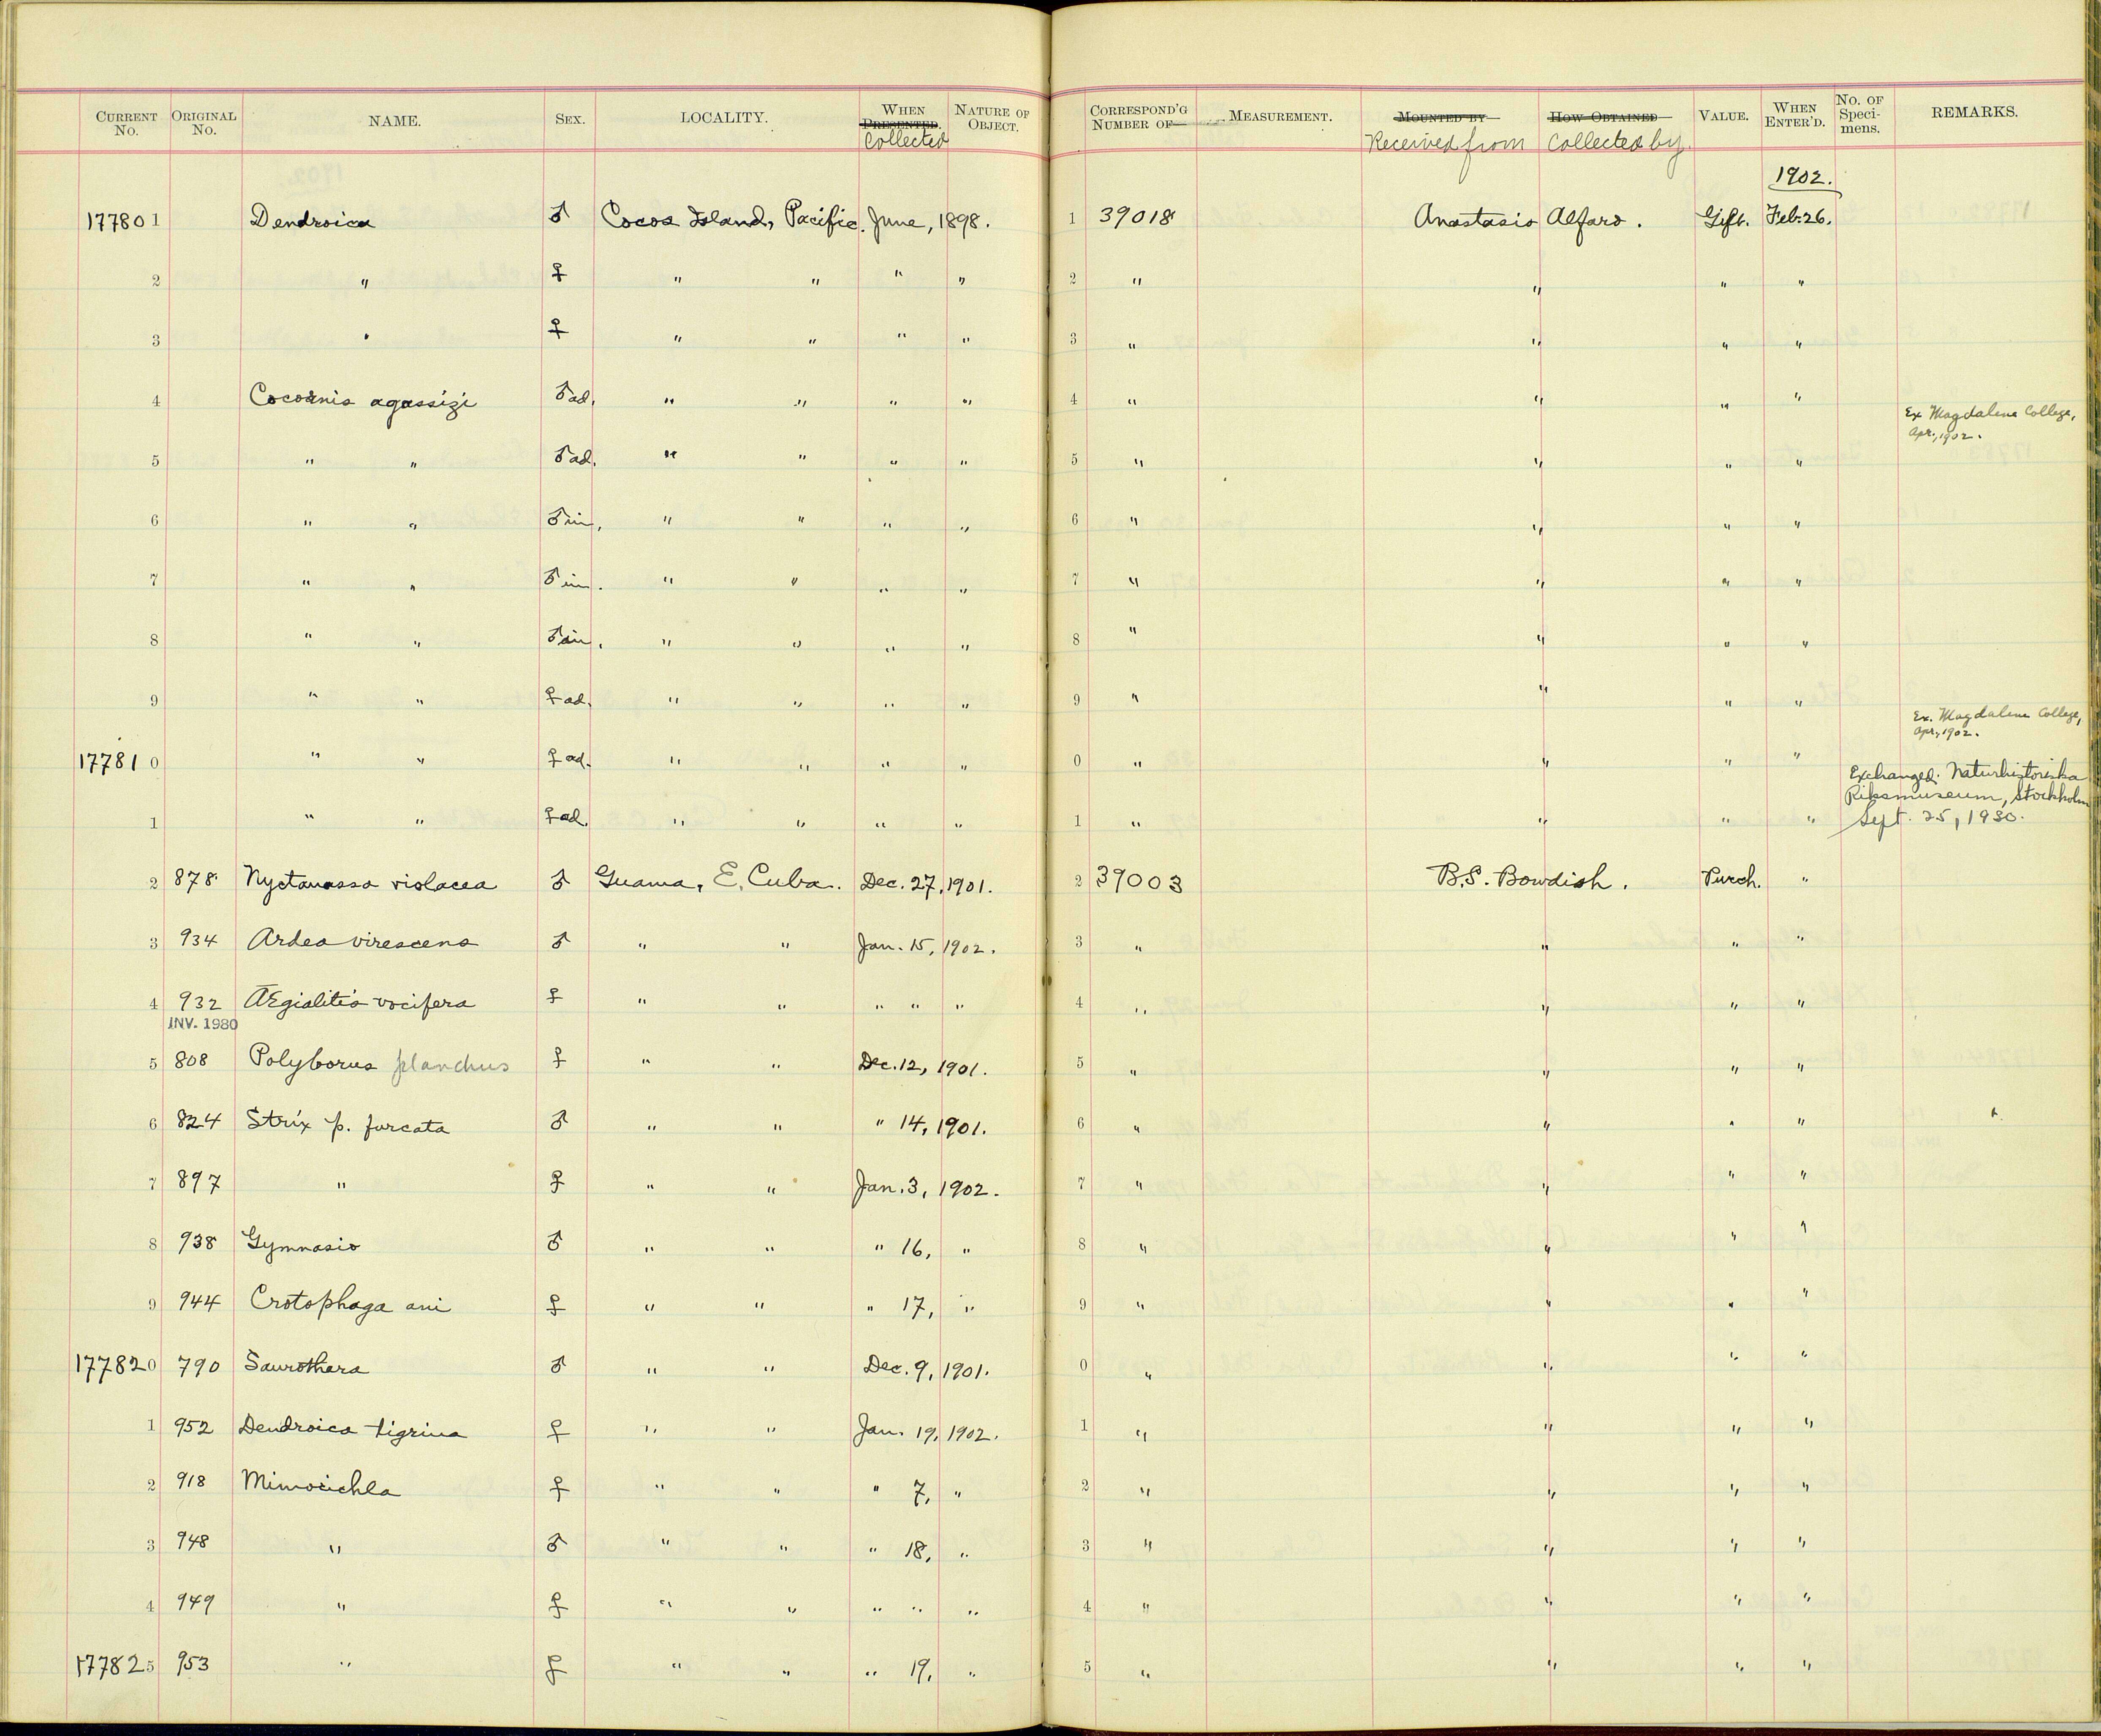 CURRENT No. ORIGINAL No. NAME. SEX. LOCALITY. WHEN PRESENTED. Collected NATURE OF OBJECT. CORRESPOND'G NUMBER OF MEASUREMENT. MOUNTED BY Received from HOW OBTAINED Collected by VALUE. WHEN ENTER'D. No. OF Specimens. REMARKS.
1902.
17780 1 Dendroica ♂ Cocos Island, Pacific. June, 1898. 1 39018 Anastasio Alfaro. Gift. Feb. 26.
2 " ♀ " " " " 2 " " " "
3 " ♀ " " " " 3 " " " "
4 Cocornis agassizi ♂ ad. " " " " 4 " " " " Ex Magdalene College, Apr., 1902.
5 " " ♂ ad. " " " " 5 " " " "
6 " " ♂ im. " " " " 6 " " " "
7 " " ♂ im. " " " " 7 " " " "
8 " " ♂ im. " " " " 8 " " " "
9 " " ♀ ad. " " " " 9 " " " "
Ex. Magdalene College, Apr., 1902.
17781 0 " " ♀ ad. " " " " 0 " " " "
Exchanged: Naturhistoriska
Riksmuseum, Stockholm
Sept. 25, 1930.
1 " " ♀ ad. " " " " 1 " " " "
2 878 Nyctanassa violacea ♂ Guama, E. Cuba. Dec. 27, 1901. 2 39003 B.S. Bowdish. Purch. "
3 934 Ardea virescens ♂ " " Jan. 15, 1902. 3 " " " "
4 932 Ægialitis vocifera ♀ " " " " " 4 " " " "
INV. 1980
5 808 Polyborus planchus ♀ " " Dec. 12, 1901. 5 " " " "
6 824 Strix p. furcata ♂ " " " 14, 1901. 6 " " " "
7 897 " ♀ " " Jan. 3, 1902. 7 " " " "
8 938 Gymnasio ♂ " " " 16, " 8 " " " "
9 944 Crotophaga ani ♀ " " " 17, " 9 " " " "
17782 0 790 Saurothera ♂ " " Dec. 9, 1901. 0 " " " "
1 952 Dendroica tigrina ♀ " " Jan. 19, 1902. 1 " " " "
2 918 Mimocichla ♀ " " " 7, " 2 " " " "
3 948 " ♂ " " " 18, " 3 " " " "
4 949 " ♀ " " " " " 4 " " " "
17782 5 953 " ♀ " " " 19, " 5 " " " "